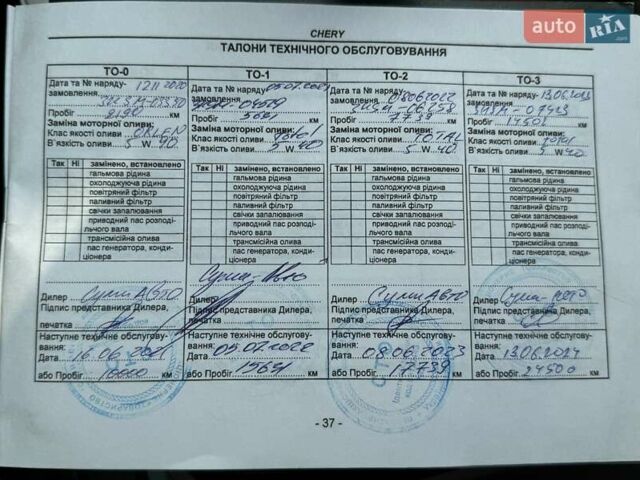 auto RIA .com
CHERY
ТАЛОНИ ТЕХНІЧНОГО ОБСЛУГОВУВАННЯ
ТО-0
Дата та № наряду-
замовлення
Пробіг 2190 км
Заміна моторної оливи:
Клас якості оливи
В`язкість оливи 5 W 40
Так Ні замінено, встановлено
гальмова рідина
охолоджуюча рідина
повітряний фільтр
паливний фільтр
свічки запалювання
приводний пас розподі-
льчого вала
трансмісійна олива
пас генератора, конди-
ціонера
Дилер Суми Авто
Підпис представника Дилера,
печатка
Наступне технічне обслугову-
вання:
Дата 16.06
або Пробіг 10000 км
ТО-1
Дата та № наряду-
замовлення
Пробіг 5641 км
Заміна моторної оливи:
Клас якості оливи Total
В`язкість оливи 5 W 40
Так Ні замінено, встановлено
гальмова рідина
охолоджуюча рідина
повітряний фільтр
паливний фільтр
свічки запалювання
приводний пас розподі-
льчого вала
трансмісійна олива
пас генератора, конди-
ціонера
Суми-Авто
Дилер
Підпис представника Дилера,
печатка
Наступне технічне обслугову-
вання:
Дата 05.07.2022
або Пробіг 15641 км
ТО-2
Дата та № наряду- 08.06.2022
замовлення
Пробіг 7739 км
Заміна моторної оливи:
Клас якості оливи TOTAL
В`язкість оливи 5 W 40
Так Ні замінено, встановлено
гальмова рідина
охолоджуюча рідина
повітряний фільтр
паливний фільтр
свічки запалювання
приводний пас розподі-
льчого вала
трансмісійна олива
пас генератора, конди-
ціонера
Дилер Суми Авто
Підпис представника Дилера,
печатка
Наступне технічне обслугову-
вання:
Дата 08.06.2023
або Пробіг 17739 км
ТО-3
Дата та № наряду- 13.06.2023
замовлення
Пробіг 14502 км
Заміна моторної оливи:
Клас якості оливи Total
В`язкість оливи 5 W 40
Так Ні замінено, встановлено
гальмова рідина
охолоджуюча рідина
повітряний фільтр
паливний фільтр
свічки запалювання
приводний пас розподі-
льчого вала
трансмісійна олива
пас генератора, конди-
ціонера
Дилер Суми-Авто
Підпис представника Дилера,
печатка
Наступне технічне обслугову-
вання:
Дата 13.06.2024
або Пробіг 24500 км
- 37 -